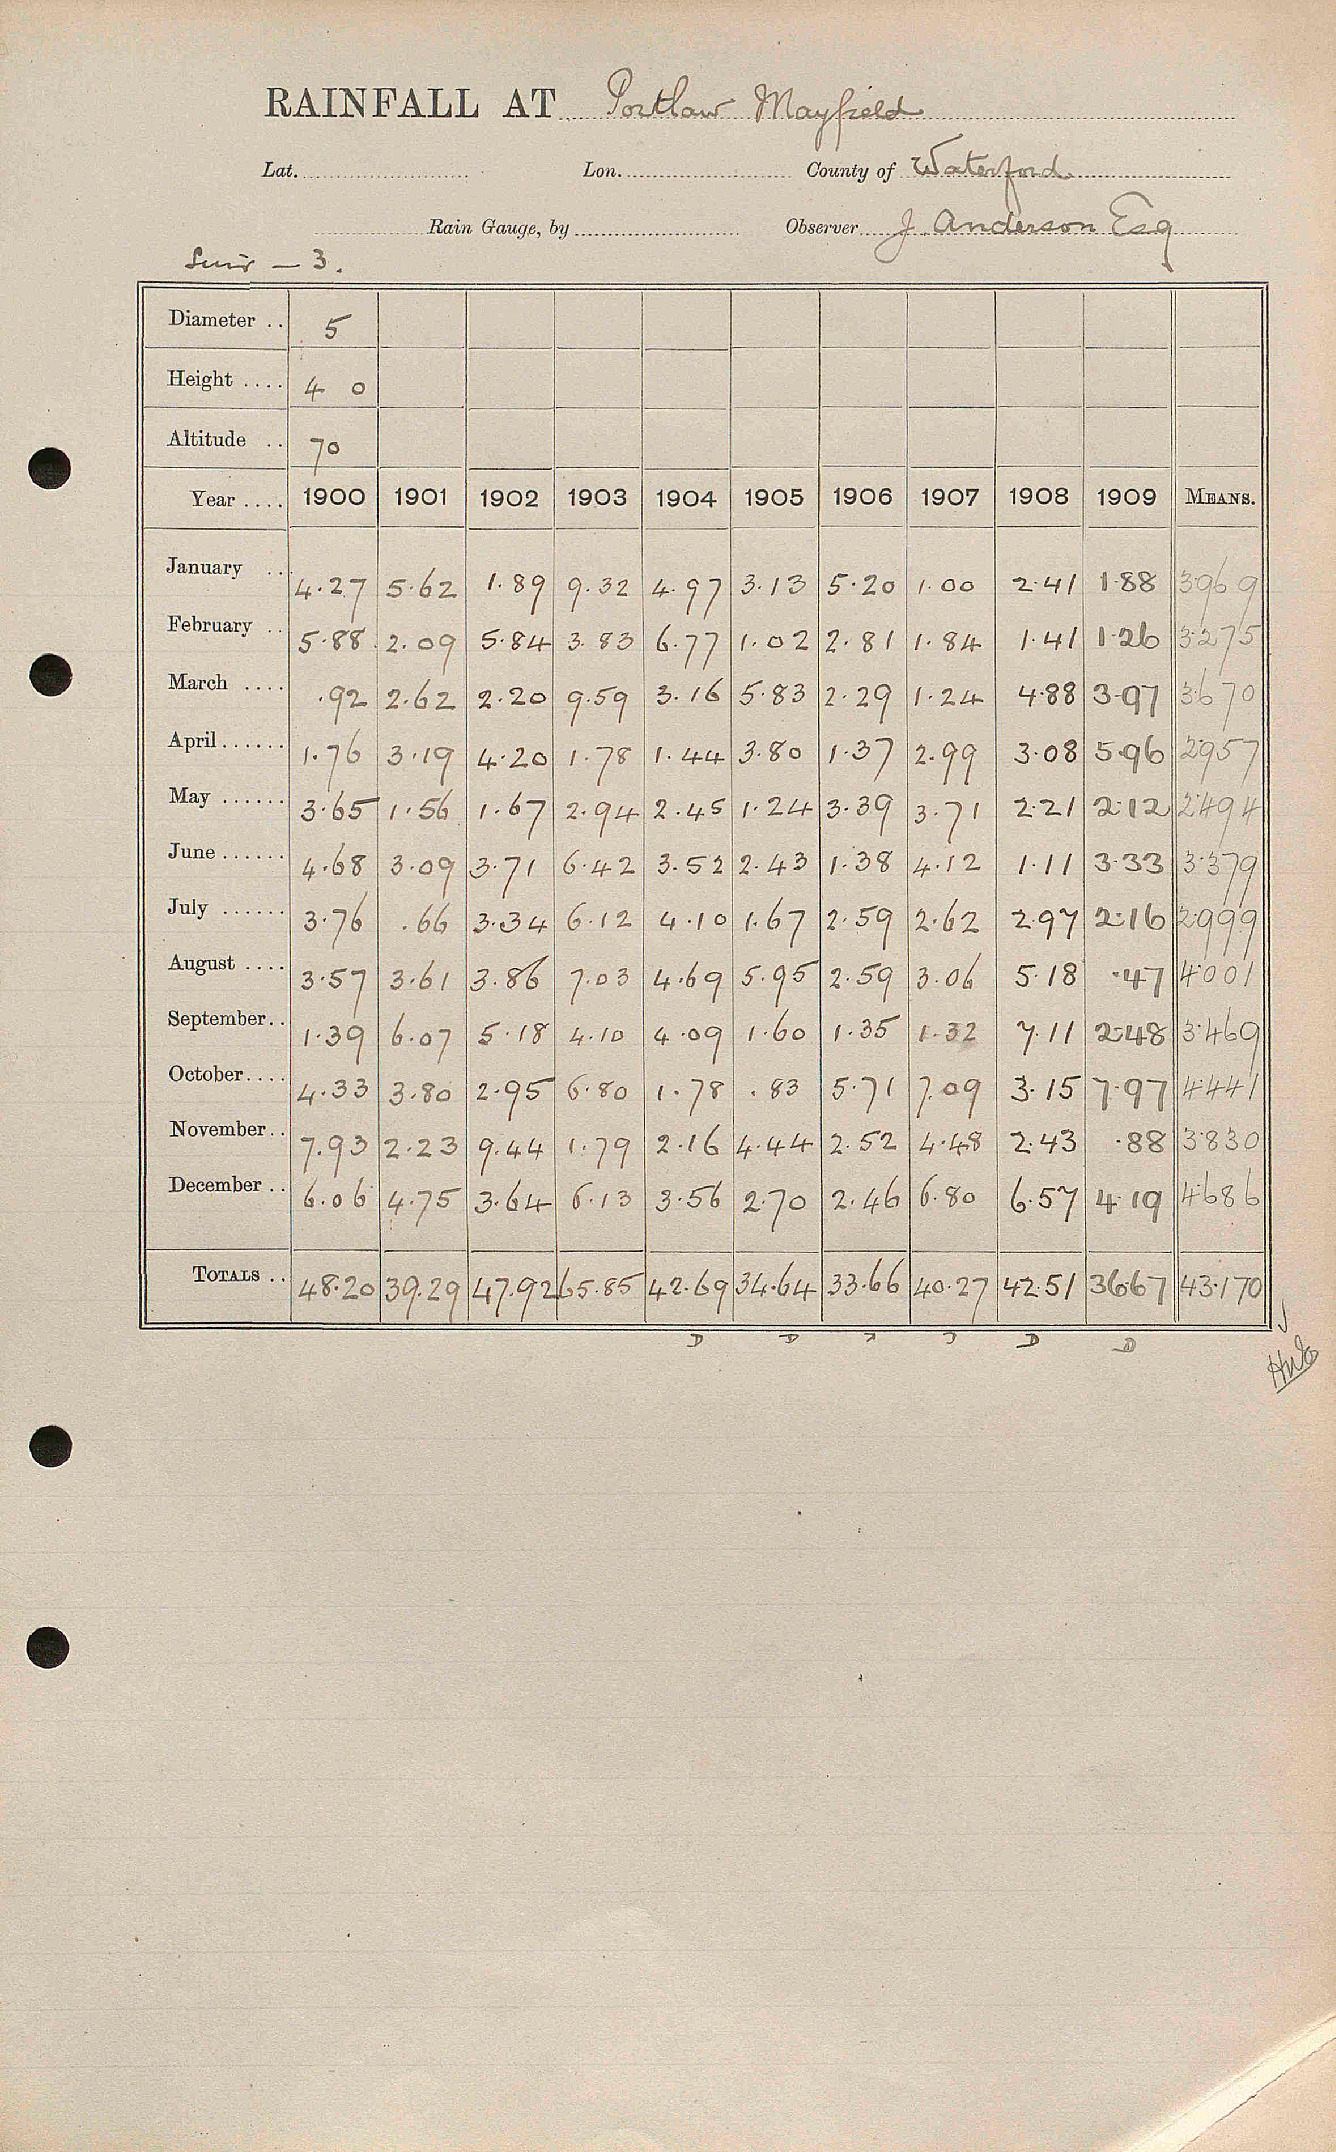 RAINFALL AT Portlaw Mayfield
Lat. Lon. County of Waterford
Rain Gauge, by Observer J. Anderson Esq
Suir – 3.
Diameter .. 5
Height .... 4 0
Altitude .. 70
Year .... 1900 1901 1902 1903 1904 1905 1906 1907 1908 1909 MEANS.
January .. 4.27 5.62 1.89 9.32 4.97 3.13 5.20 1.00 2.41 1.88 3.969
February .. 5.88 2.09 5.84 3.83 6.77 1.02 2.81 1.84 1.41 1.26 3.275
March .... .92 2.62 2.20 9.59 3.16 5.83 2.29 1.24 4.88 3.97 3.670
April...... 1.76 3.19 4.20 1.78 1.44 3.80 1.37 2.99 3.08 5.96 2.957
May ...... 3.65 1.56 1.67 2.94 2.45 1.24 3.39 3.71 2.21 2.12 2.494
June...... 4.68 3.09 3.71 6.42 3.52 2.43 1.38 4.12 1.11 3.33 3.379
July ...... 3.76 .66 3.34 6.12 4.10 1.67 2.59 2.62 2.97 2.16 2.999
August .... 3.57 3.61 3.86 7.03 4.69 5.95 2.59 3.06 5.18 .47 4.001
September.. 1.39 6.07 5.18 4.10 4.09 1.60 1.35 1.32 7.11 2.48 3.469
October.... 4.33 3.80 2.95 6.80 1.78 .83 5.71 7.09 3.15 7.97 4.441
November.. 7.93 2.23 9.44 1.79 2.16 4.44 2.52 4.48 2.43 .88 3.830
December .. 6.06 4.75 3.64 6.13 3.56 2.70 2.46 6.80 6.57 4.19 4.686
TOTALS .. 48.20 39.29 47.92 65.85 42.69 34.64 33.66 40.27 42.51 36.67 43.170
D D D D